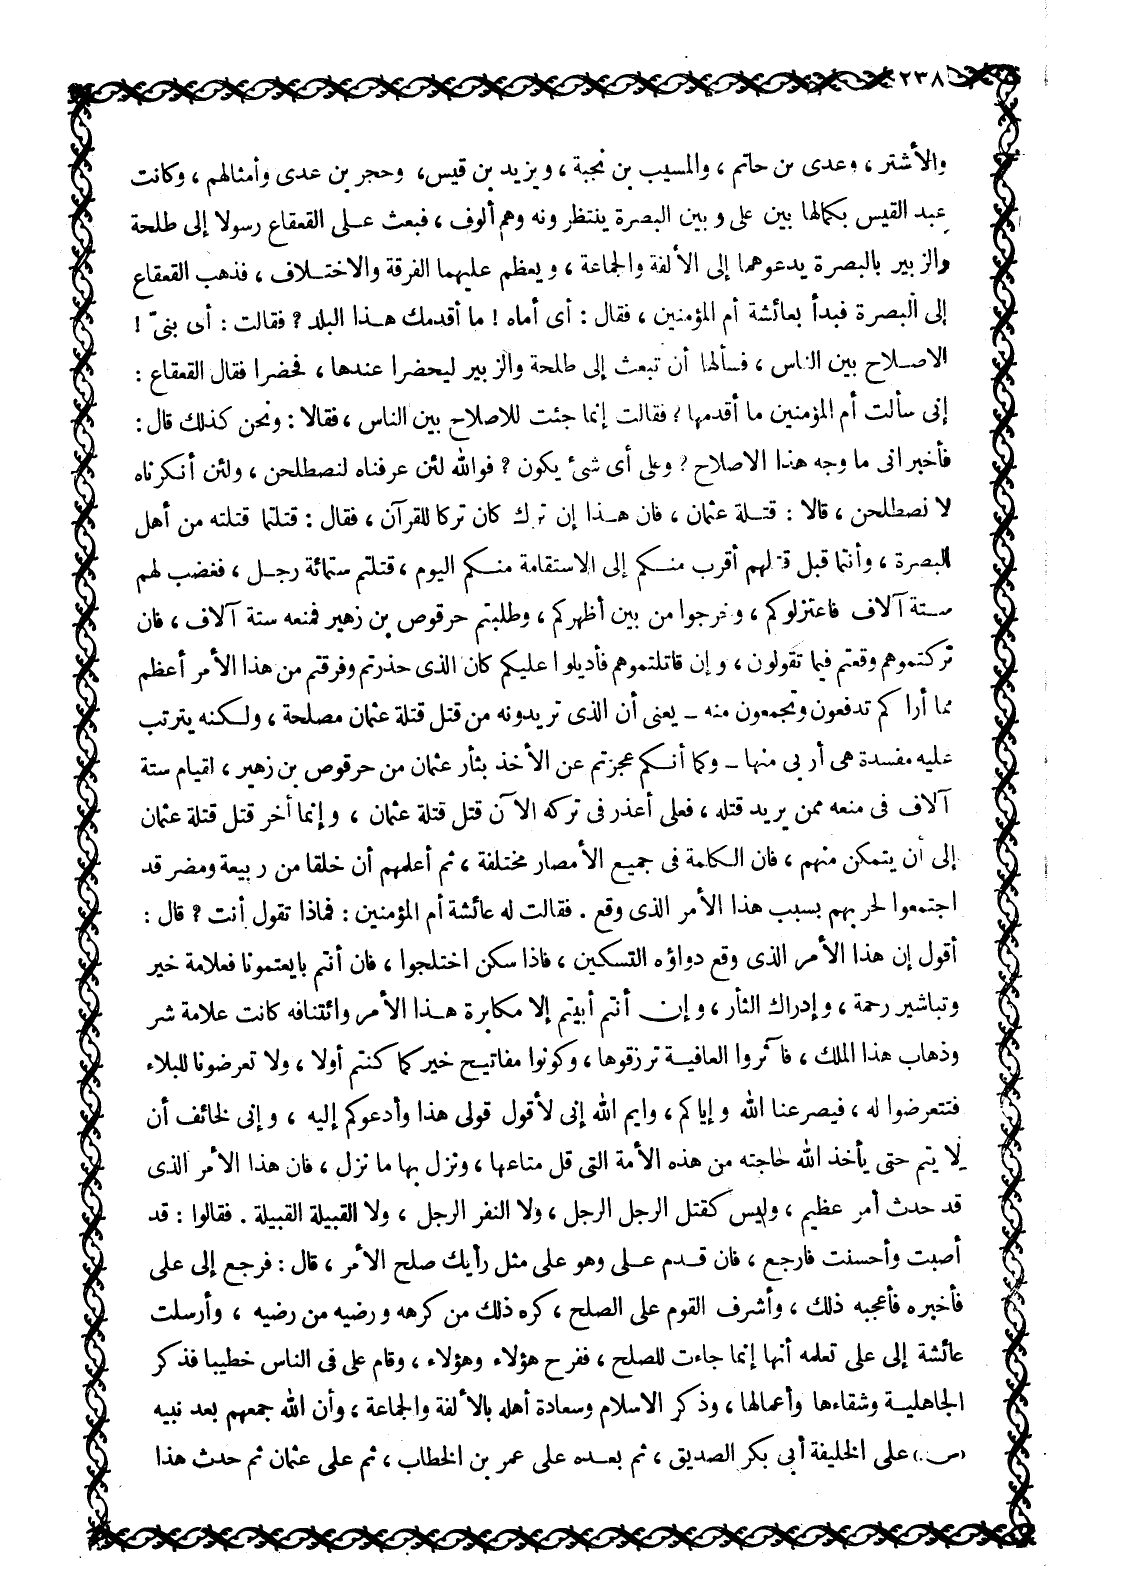 ٢٣٨
والأشتر ، وعدى بن حاتم ، والمسيب بن نجبة ، ويزيد بن قيس، وحجر بن عدى وأمثالهم ، وكانت
عبد القيس بكمالها بين على وبين البصرة ينتظرونه وهم ألوف ، فبعث على القعقاع رسولا إلى طلحة
والزبير بالبصرة يدعوهما إلى الألفة والجماعة ، ويعظم عليهما الفرقة والاختلاف ، فذهب القعقاع
إلى البصرة فبدأ بعائشة أم المؤمنين ، فقال : أى أماه ! ما أقدمك هذا البلد ؟ فقالت : أى بنىّ !
الاصلاح بين الناس ، فسألها أن تبعث إلى طلحة والزبير ليحضرا عندها ، فحضرا فقال القعقاع :
إنى سألت أم المؤمنين ما أقدمها ؟ فقالت إنما جئت للاصلاح بين الناس ، فقالا : ونحن كذلك قال :
فأخبرانى ما وجه هذا الاصلاح ؟ وعلى أى شىء يكون ؟ فوالله لئن عرفناه لنصطلحن ، ولئن أنكرناه
لا نصطلحن ، قالا : قتلة عثمان ، فان هذا إن ترك كان تركا للقرآن ، فقال : قتلتما قتلته من أهل
البصرة ، وأنتما قبل قتلهم أقرب منكم إلى الاستقامة منكم اليوم ، قتلتم ستمائة رجل ، فغضب لهم
ستة آلاف فاعتزلوكم ، وخرجوا من بين أظهركم ، وطلبتم حرقوص بن زهير فمنعه ستة آلاف ، فان
تركتموهم وقعتم فيما تقولون ، وإن قاتلتموهم فأديلوا عليكم كان الذى حذرتم وفرقتم من هذا الأمر أعظم
مما أراكم تدفعون وتجمعون منه ــ يعنى أن الذى تريدونه من قتل قتلة عثمان مصلحة ، ولكنه يترتب
عليه مفسدة هى أربى منها ــ وكما أنكم عجزتم عن الأخذ بثأر عثمان من حرقوص بن زهير ، لقيام ستة
آلاف فى منعه ممن يريد قتله ، فعلى أعذر فى تركه الآن قتل قتلة عثمان ، وإنما أخر قتل قتلة عثمان
إلى أن يتمكن منهم ، فان الكلمة فى جميع الأمصار مختلفة ، ثم أعلمهم أن خلقا من ربيعة ومضر قد
اجتمعوا لحربهم بسبب هذا الأمر الذى وقع . فقالت له عائشة أم المؤمنين : فماذا تقول أنت ؟ قال :
أقول إن هذا الأمر الذى وقع دواؤه التسكين ، فاذا سكن اختلجوا ، فان أنتم بايعتمونا فعلامة خير
وتباشير رحمة ، وإدراك الثأر ، وإن أنتم أبيتم إلا مكابرة هذا الأمر وائتنافه كانت علامة شر
وذهاب هذا الملك ، فآثروا العافية ترزقوها ، وكونوا مفاتيح خير كما كنتم أولا ، ولا تعرضونا للبلاء
فتتعرضوا له ، فيصرعنا الله وإياكم ، وايم الله إنى لأقول قولى هذا وأدعوكم إليه ، وإنى لخائف أن
لا يتم حتى يأخذ الله حاجته من هذه الأمة التى قل متاعها ، ونزل بها ما نزل ، فان هذا الأمر الذى
قد حدث أمر عظيم ، وليس كقتل الرجل الرجل ، ولا النفر الرجل ، ولا القبيلة القبيلة . فقالوا : قد
أصبت وأحسنت فارجع ، فان قدم على وهو على مثل رأيك صلح الأمر ، قال : فرجع إلى على
فأخبره فأعجبه ذلك ، وأشرف القوم على الصلح ، كره ذلك من كرهه ورضيه من رضيه ، وأرسلت
عائشة إلى على تعلمه أنها إنما جاءت للصلح ، ففرح هؤلاء وهؤلاء ، وقام على فى الناس خطيبا فذكر
الجاهلية وشقاءها وأعمالها ، وذكر الاسلام وسعادة أهله بالألفة والجماعة ، وأن الله جمعهم بعد نبيه
(ص.) على الخليفة أبى بكر الصديق ، ثم بعده على عمر بن الخطاب ، ثم على عثمان ثم حدث هذا